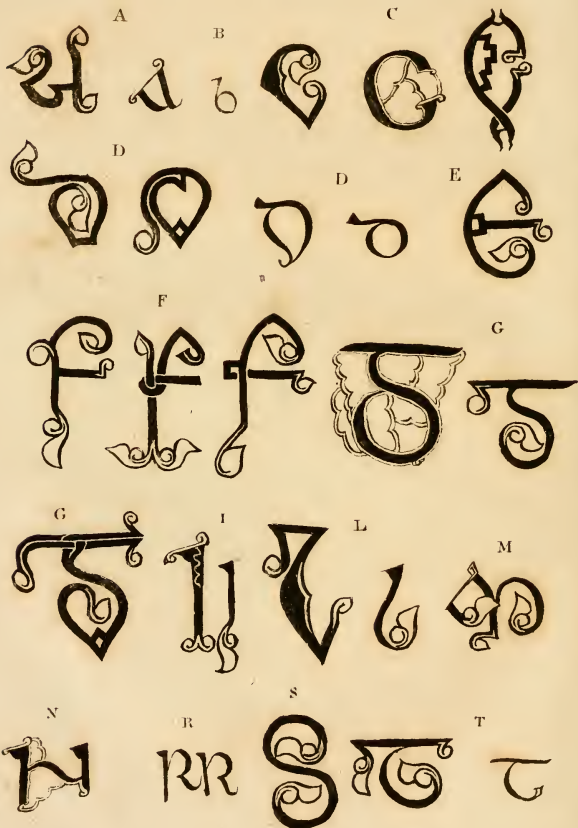 A B C
D D E
F G
G I L M
N R S T